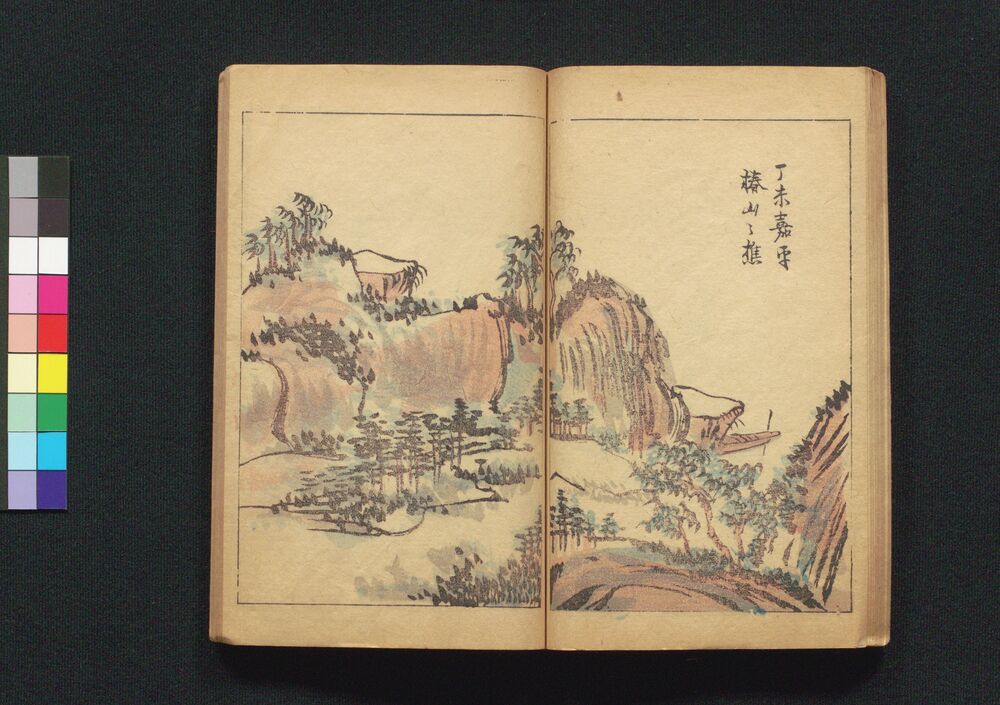 丁未嘉平
椿山々樵